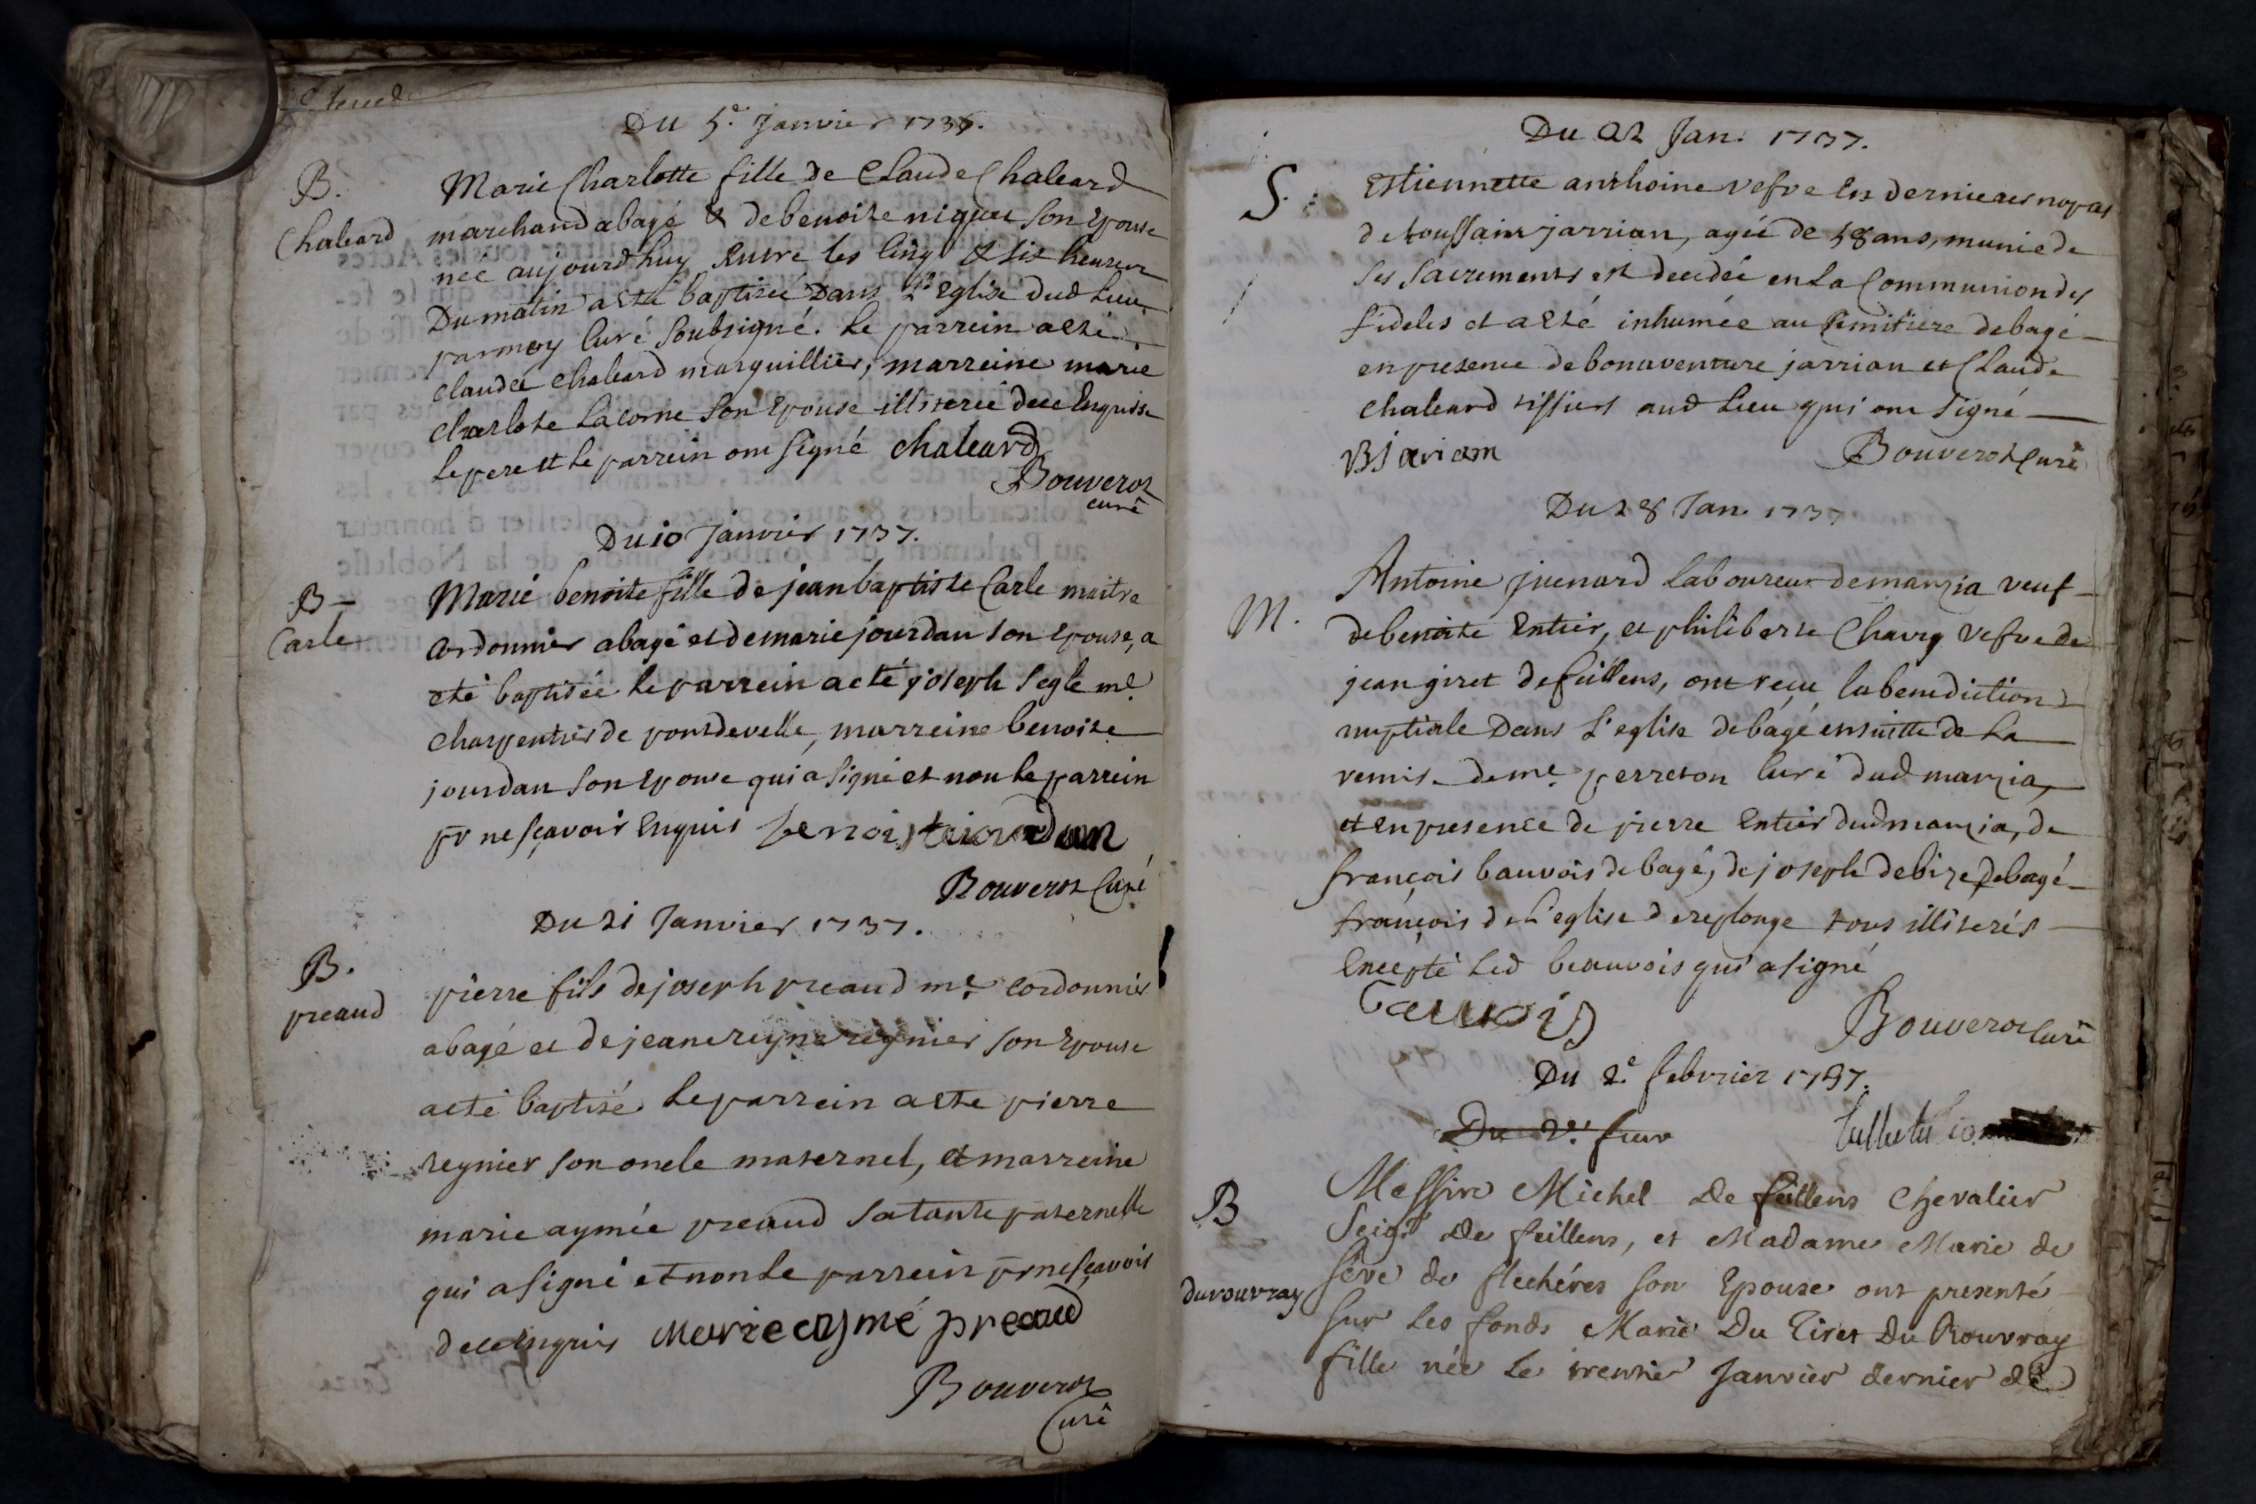 Du 5.e Janvier 1737.
B.
Chaleard
Marie Charlotte fille de Claude Chaleard
marchand a bagé & de benoite niguet son epouse
neé aujourdhuy Entre les cinq & six heures
Du matin a esté baptiseé Dans L'Eglise dud Lieu
par moy Curé soubsigné. Le parrein a esté
claude chaleard marguillier, marreine marie
charlote Lacorne son epouse illitereé de ce Enquise
le pere et le parrein ont signé chaleard
Bouverot
curé
Du 10 Janvier 1737.
B
Carle
Marie benoite fille de jean baptiste Carle maitre
cordonnier a bagé et de marie jourdan son epouse, a
eté baptisée le parrein a eté joseph segle me
charpentier de pontdevelle, marreine benoite
jourdan son epouse qui a signé et non le parrein
pr ne sçavoir Enquis benoiste iourdan
Bouverot Curé
Du 21 Janvier 1737.
B.
preaud
pierre fils de joseph preaud me cordonnier
a bagé et de jeane reyne reynier son epouse
a eté baptisé. le parrein a esté pierre
reynier son oncle maternel, et marreine
marie aymée preaud sa tante paternelle
qui a signé et non le parrein pr ne sçavoir
de ce Enquis marie aymé preaud
Bouverot
Curé
Du 22 Jan. 1737.
S.
Estiennette anthoine vefve En dernieres nopces
de toussaint jarrian, ageé de 58 ans, munie de
ses sacrements est decedeé en la Communion des
fideles et a esté inhumée au Cemitiere de bagé
en presence de bonaventure jarrian et Claude
chaleard tissiers aud Lieu qui ont signé
B jariam
Bouverot Curé
Du 28 Jan. 1737
M.
Antoine juenard Laboureur de manzia veuf
de benoite Entier, et philiberte Chavy vefve de
jean giret de feillens, ont reçu la benediction
nuptiale Dans L'eglise de bagé ensuitte de La
remise de me perreton Curé dud manzia,
et en presence de pierre Entier dud manzia, de
françois bauvois de bagé, de joseph debize de bagé
françois de L'eglise de replonge tous illiterés
Excepté Led beauvois qui a signé
bauvois
Bouverot Curé
Du 2.e febvrier 1737.
Du 2.e
B
durouvray
Messire Michel De feillens Chevalier
Seigr De feillens, et Madame Marie de
séve de flechéres son Epouse ont presenté
sur les fonds Marie Du Tiret Du Rouvray
fille née Le trentie Janvier dernier de